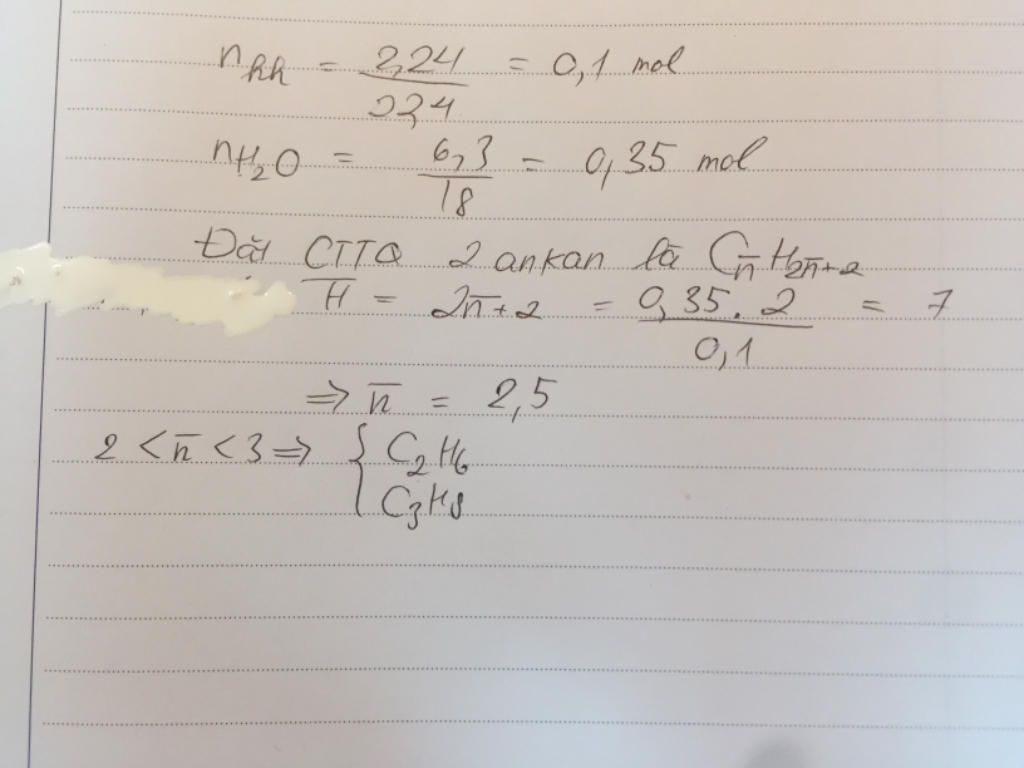 n hh = 2,24 / 22,4 = 0,1 mol
nH₂O = 6,3 / 18 = 0,35 mol
Đặt CTTQ 2 ankan là Cn̅H2n̅+2
H̅ = 2n̅+2 = 0,35.2 / 0,1 = 7
⇒ n̅ = 2,5
2 < n̅ < 3 ⇒ { C₂H₆
C₃H₈